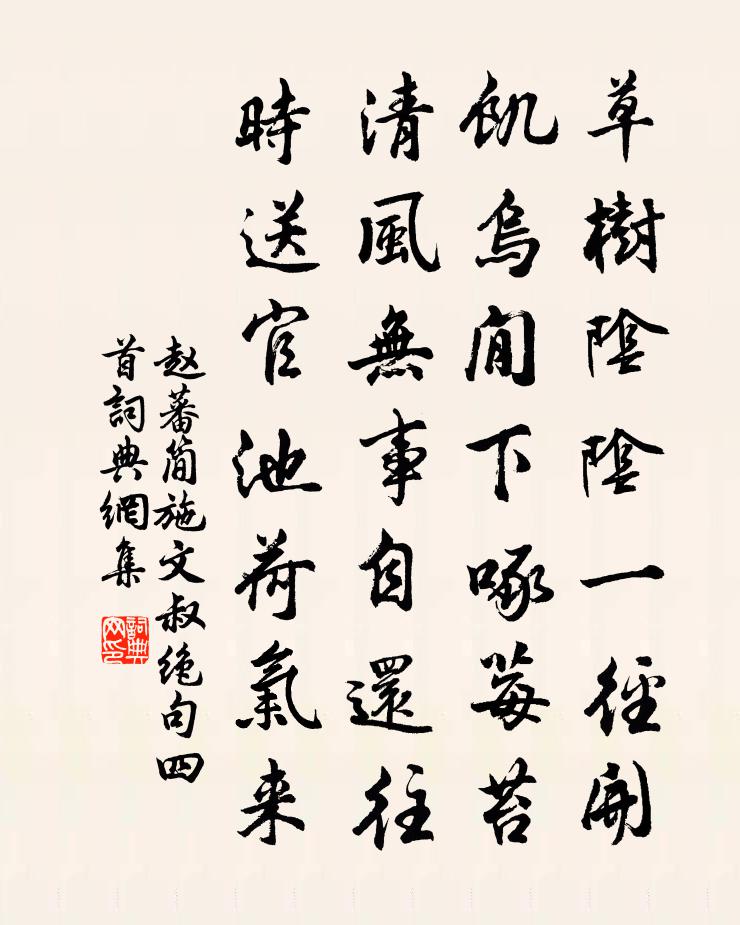 草樹陰陰一徑開
飢烏閒下啄莓苔
清風無事自還往
時送官池荷氣来
赵蕃简施文叔绝句四
首詞典網集
詞典网印